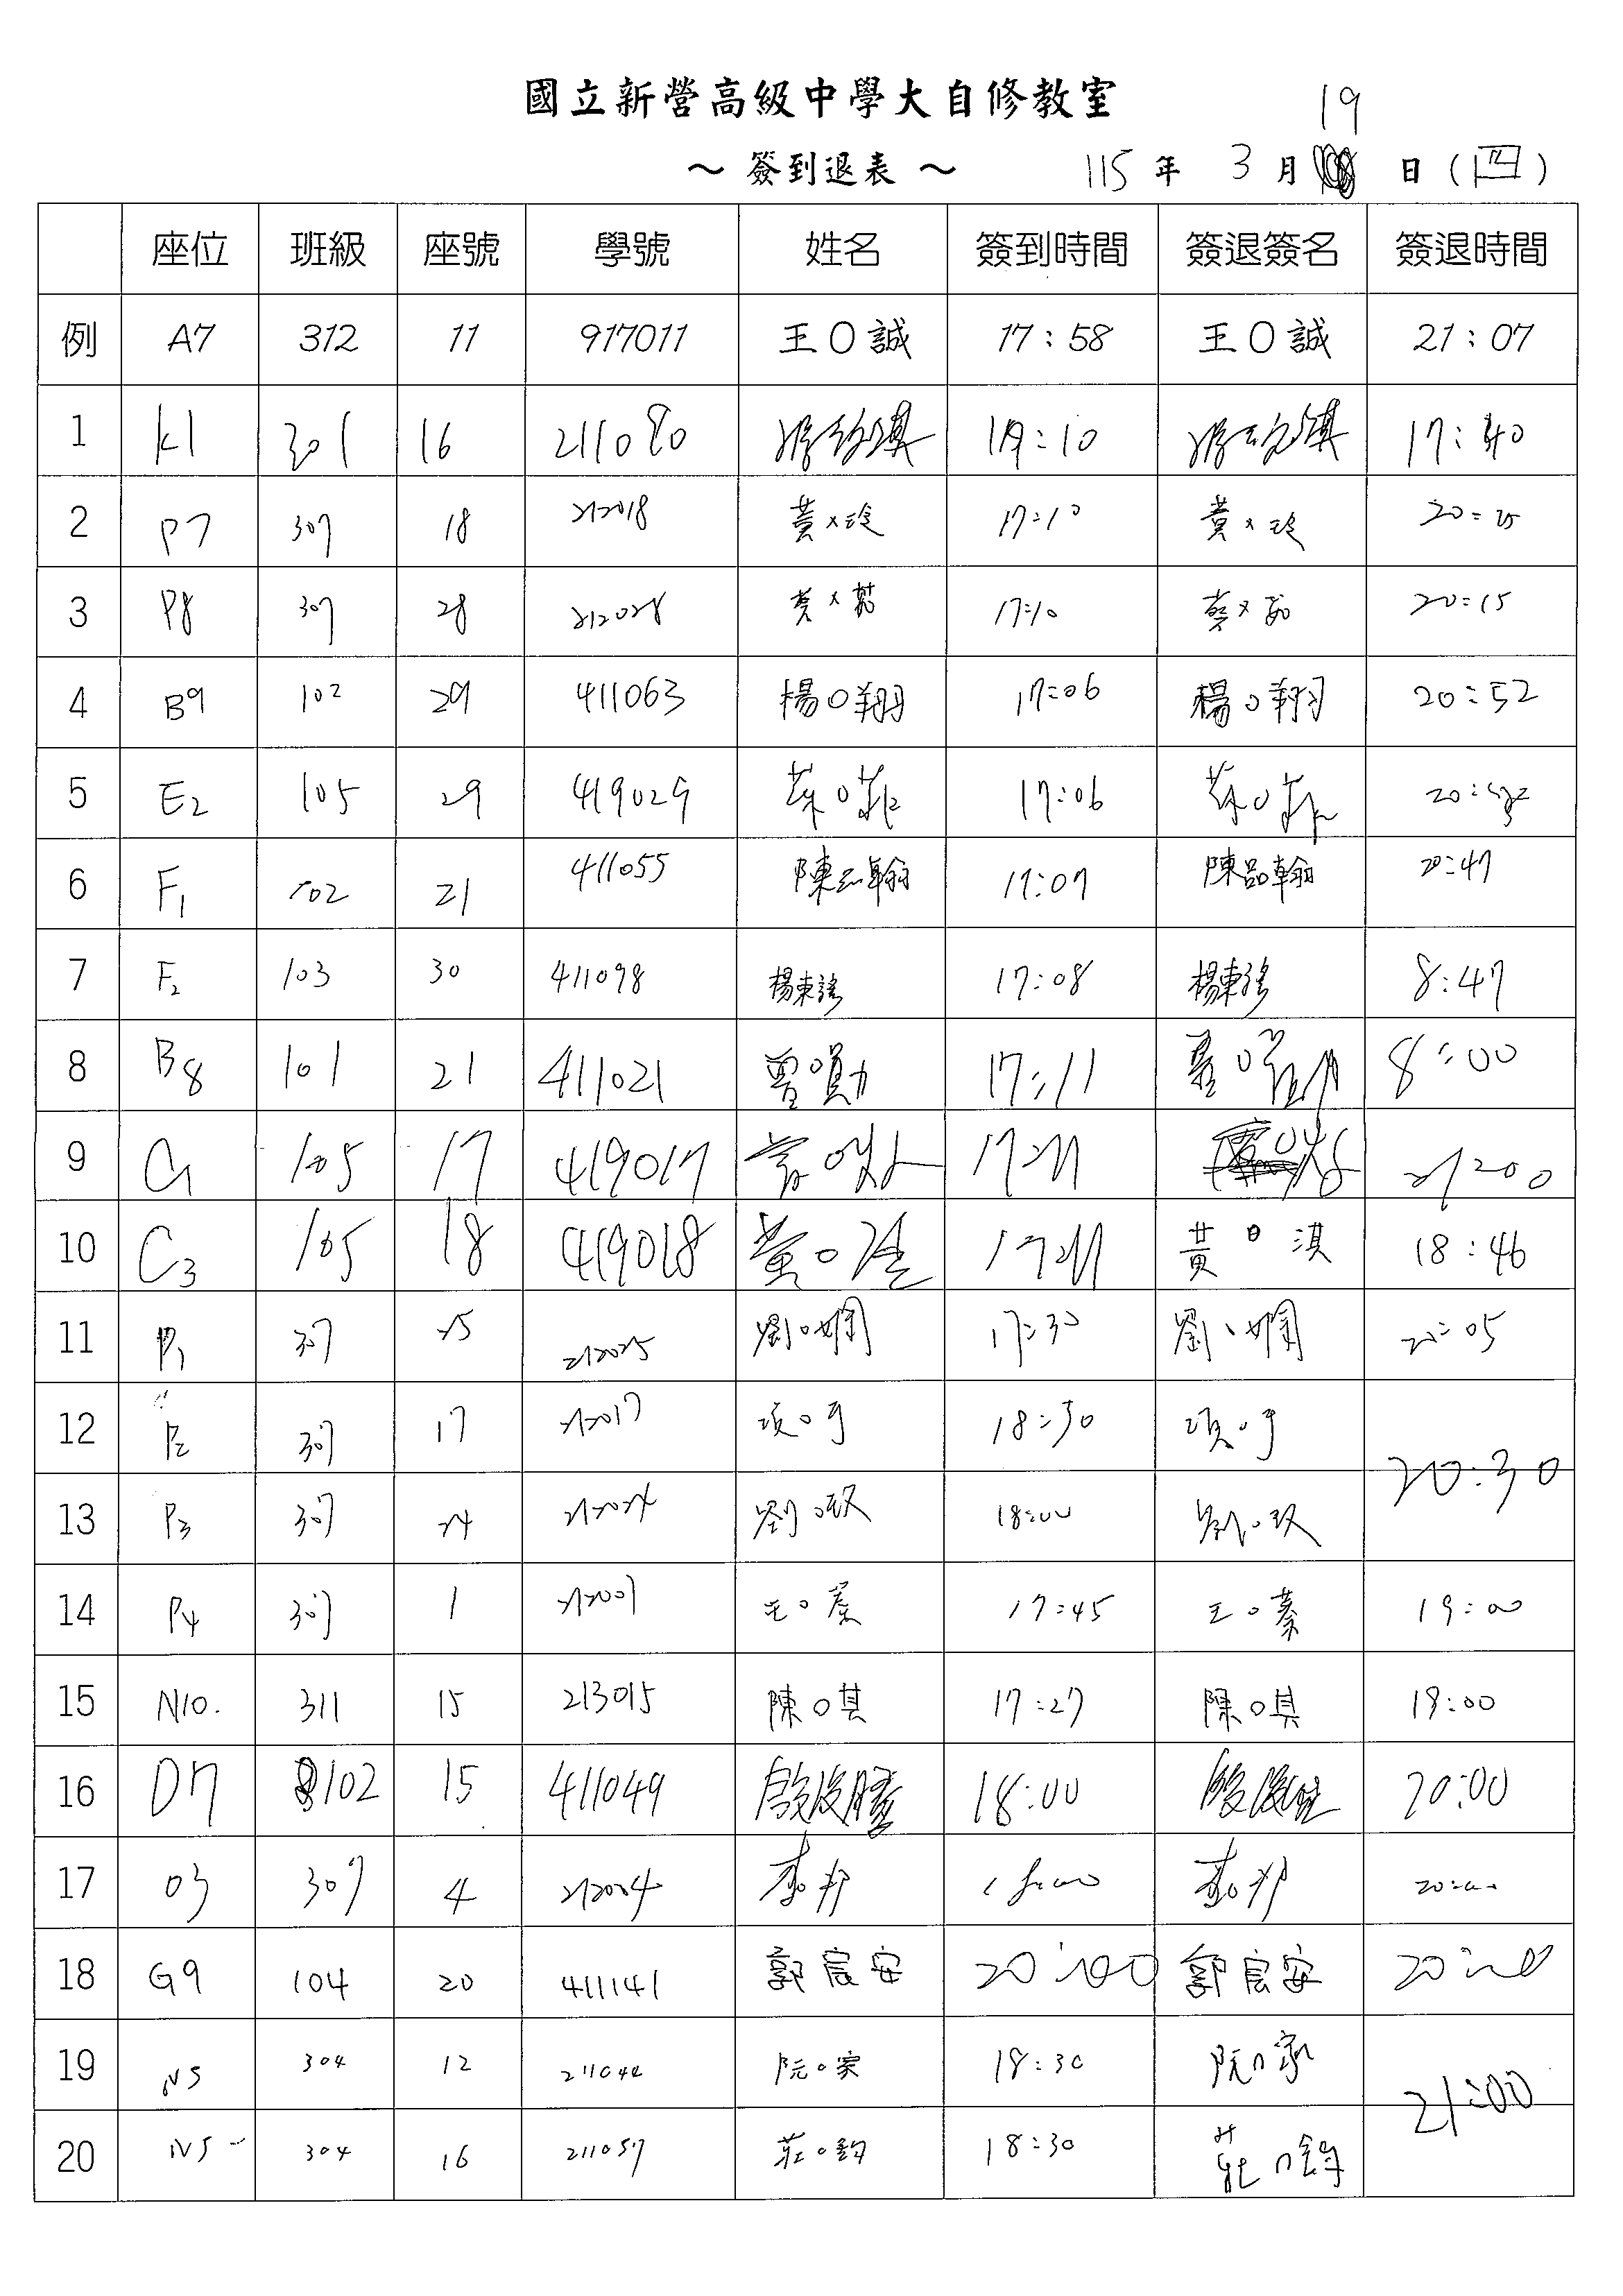 國立新營高級中學大自修教室
～ 簽到退表 ～ 115 年 3 月 19 日 (四)
座位 班級 座號 學號 姓名 簽到時間 簽退簽名 簽退時間
例 A7 312 11 917011 王〇誠 17:58 王〇誠 21:07
1 K1 301 16 211080 17:40
2 P7 307 18 212018 黃x玲 17:10 黃x玲
3 P8 307 28 212028 17:10 20:15
4 B9 102 29 411063 楊〇翔 17:06 楊〇翔 20:52
5 E2 105 29 419029 17:06
6 F1 102 21 411055 陳品翰 17:07 陳品翰 20:47
7 F2 103 30 411098 17:08 8:47
8 B8 101 21 411021 17:11 8:00
9 105 17 419017 17:11 21:00
10 C3 105 18 419018 17:11 黃〇淇 18:46
11 P1 307 25 212025 劉〇嫻 17:30 劉、嫻 20:05
12 P2 307 17 212017 18:30 20:30
13 P3 307 24 212024 劉〇玟 18:00 劉〇玟
14 P4 307 1 212001 王〇蓁 17:45 王〇蓁 19:00
15 N10. 311 15 213015 陳〇其 17:27 陳〇其 19:00
16 D7 102 15 411049 18:00 20:00
17 O3 307 4 212004 18:00 20:00
18 G9 104 20 411141 郭宸安 20:00 郭宸安
19 N5 304 12 211044 阮〇家 18:30 阮〇家 21:00
20 N5 304 16 211057 莊〇鈞 18:30 莊〇鈞